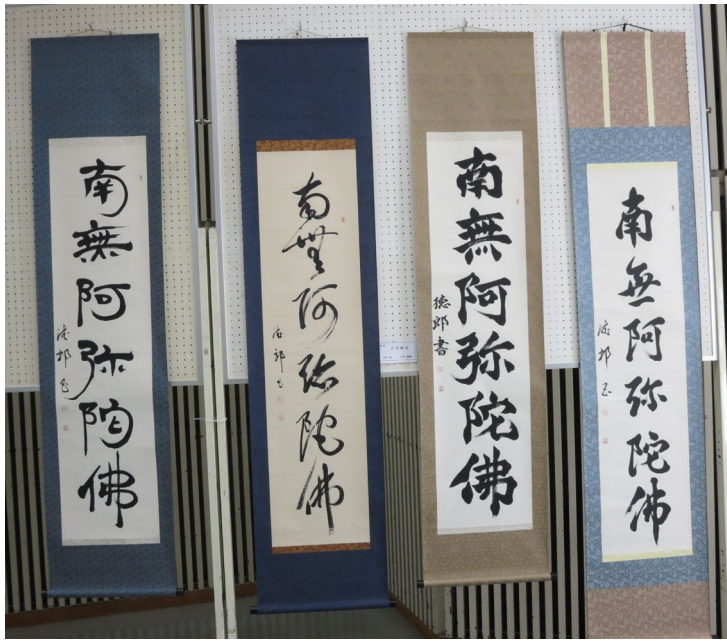 南無阿弥陀佛
徳郎書
南無阿弥陀佛
南無阿弥陀佛
徳郎書
南無阿弥陀佛